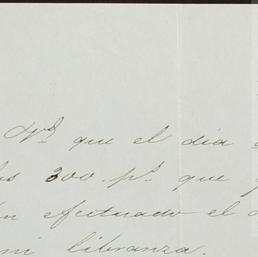 Vd que el dia
los 300. ps que
efectuado el
mi libranza.